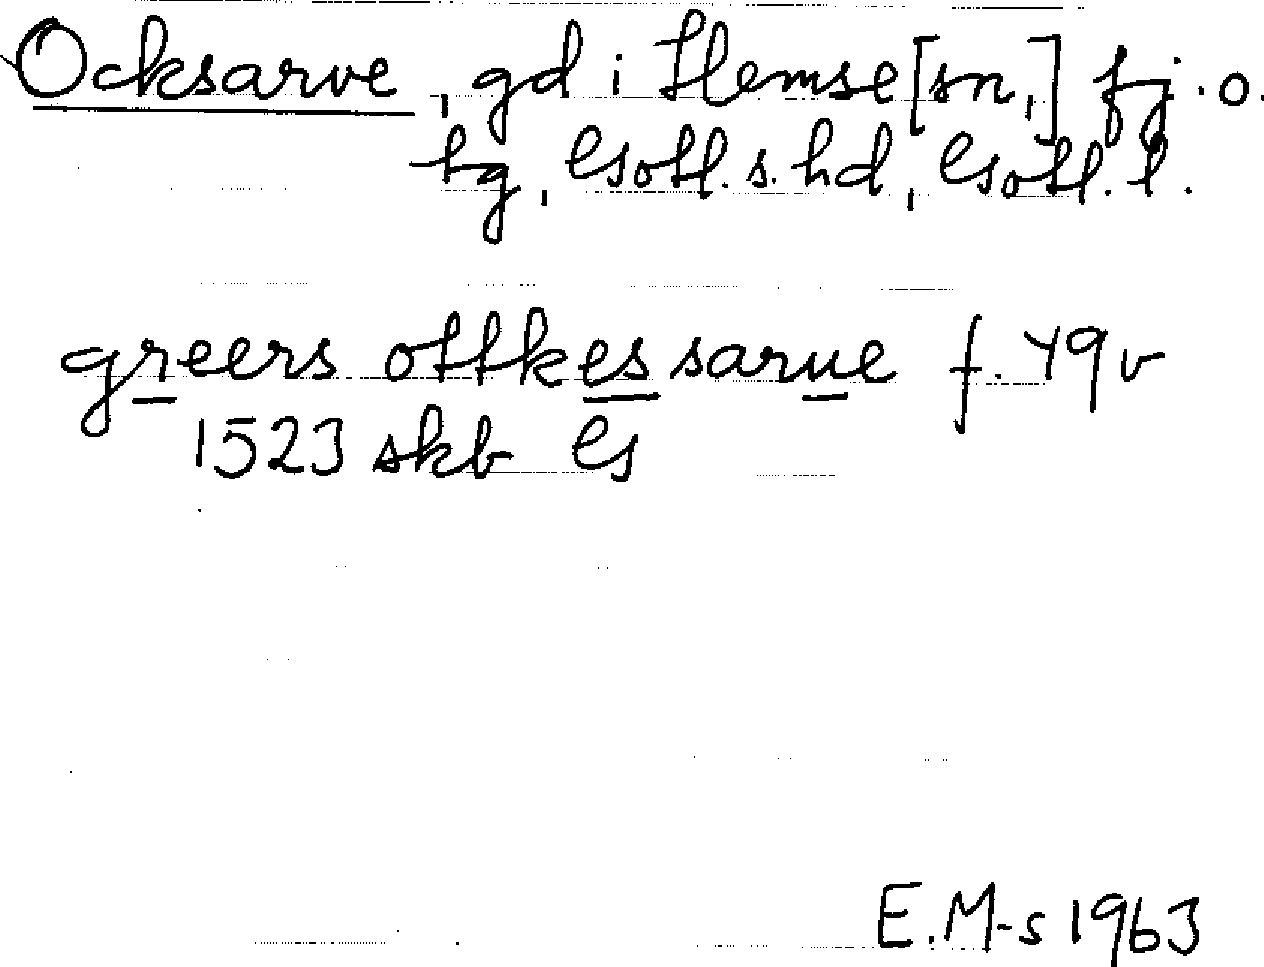 Ocksarve, gd i Hemse [sn,] fj. o.
tg, Gotl. s. hd, Gotl. l.
greers ottkes sarue f. 49 v
1523 skb G
E. M-s 1963